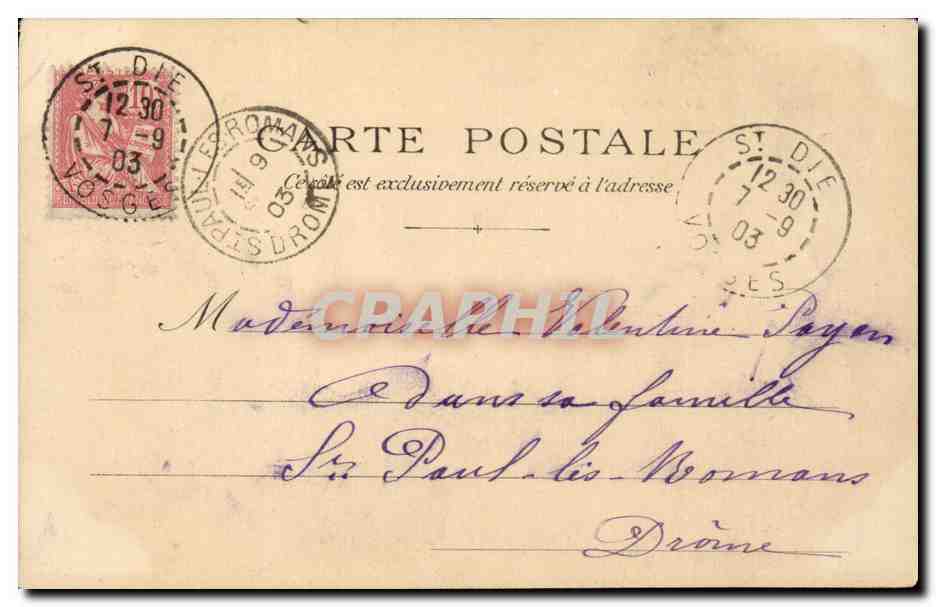 ST DIE
12 30
7 -9
03
VOSGES
10
ST PAUL-LES-ROMANS
9
03
DROME
CARTE POSTALE
Ce côté est exclusivement réservé à l'adresse
ST DIE
12 30
7 -9
03
VOSGES
CPAPHIL
Mademoiselle Valentine Payen
dans sa famille
St Paul-lès-Romans
Drôme